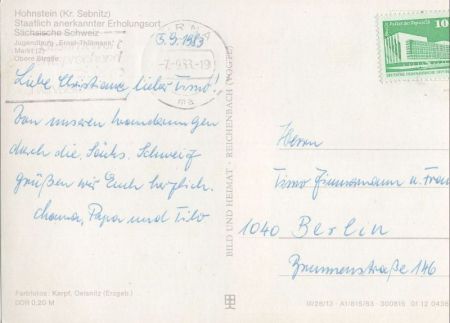 Hohnstein (Kr. Sebnitz)
Staatlich anerkannter Erholungsort
Sächsische Schweiz
Jugendburg „Ernst Thälmann"
Markt (2)
Obere Straße
3.9.1983
-7.-9.83.-19
10
Liebe Christiane, lieber Timo!
Von unseren Wanderungen
durch die Sächs. Schweiz
grüßen wir Euch herzlich.
Mama, Papa und Tilo
BILD UND HEIMAT · REICHENBACH (VOGTL)
Herrn
Timo Zimmermann u. Frau
1040 Berlin
Brunnenstraße 146
Farbfotos: Karpf, Oelsnitz (Erzgeb.)
DDR 0,20 M
01 12 0436